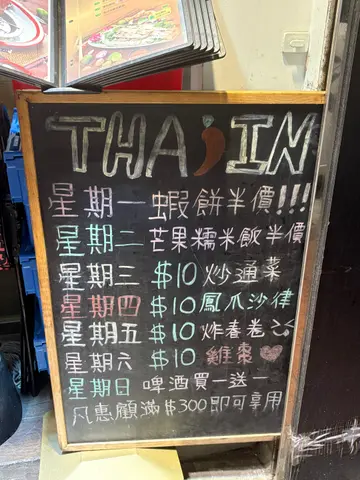 THAIIN
星期一 蝦餅半價!!!
星期二 芒果糯米飯半價
星期三 $10 炒通菜
星期四 $10 鳳爪沙律
星期五 $10 炸春卷
星期六 $10 雞棗
星期日 啤酒買一送一
凡惠顧滿$300即可享用